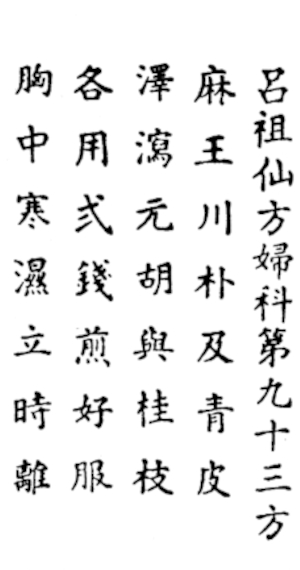 呂祖仙方婦科第九十三方
麻王川朴及青皮
澤瀉元胡與桂枝
各用弍錢煎好服
胸中寒濕立時離